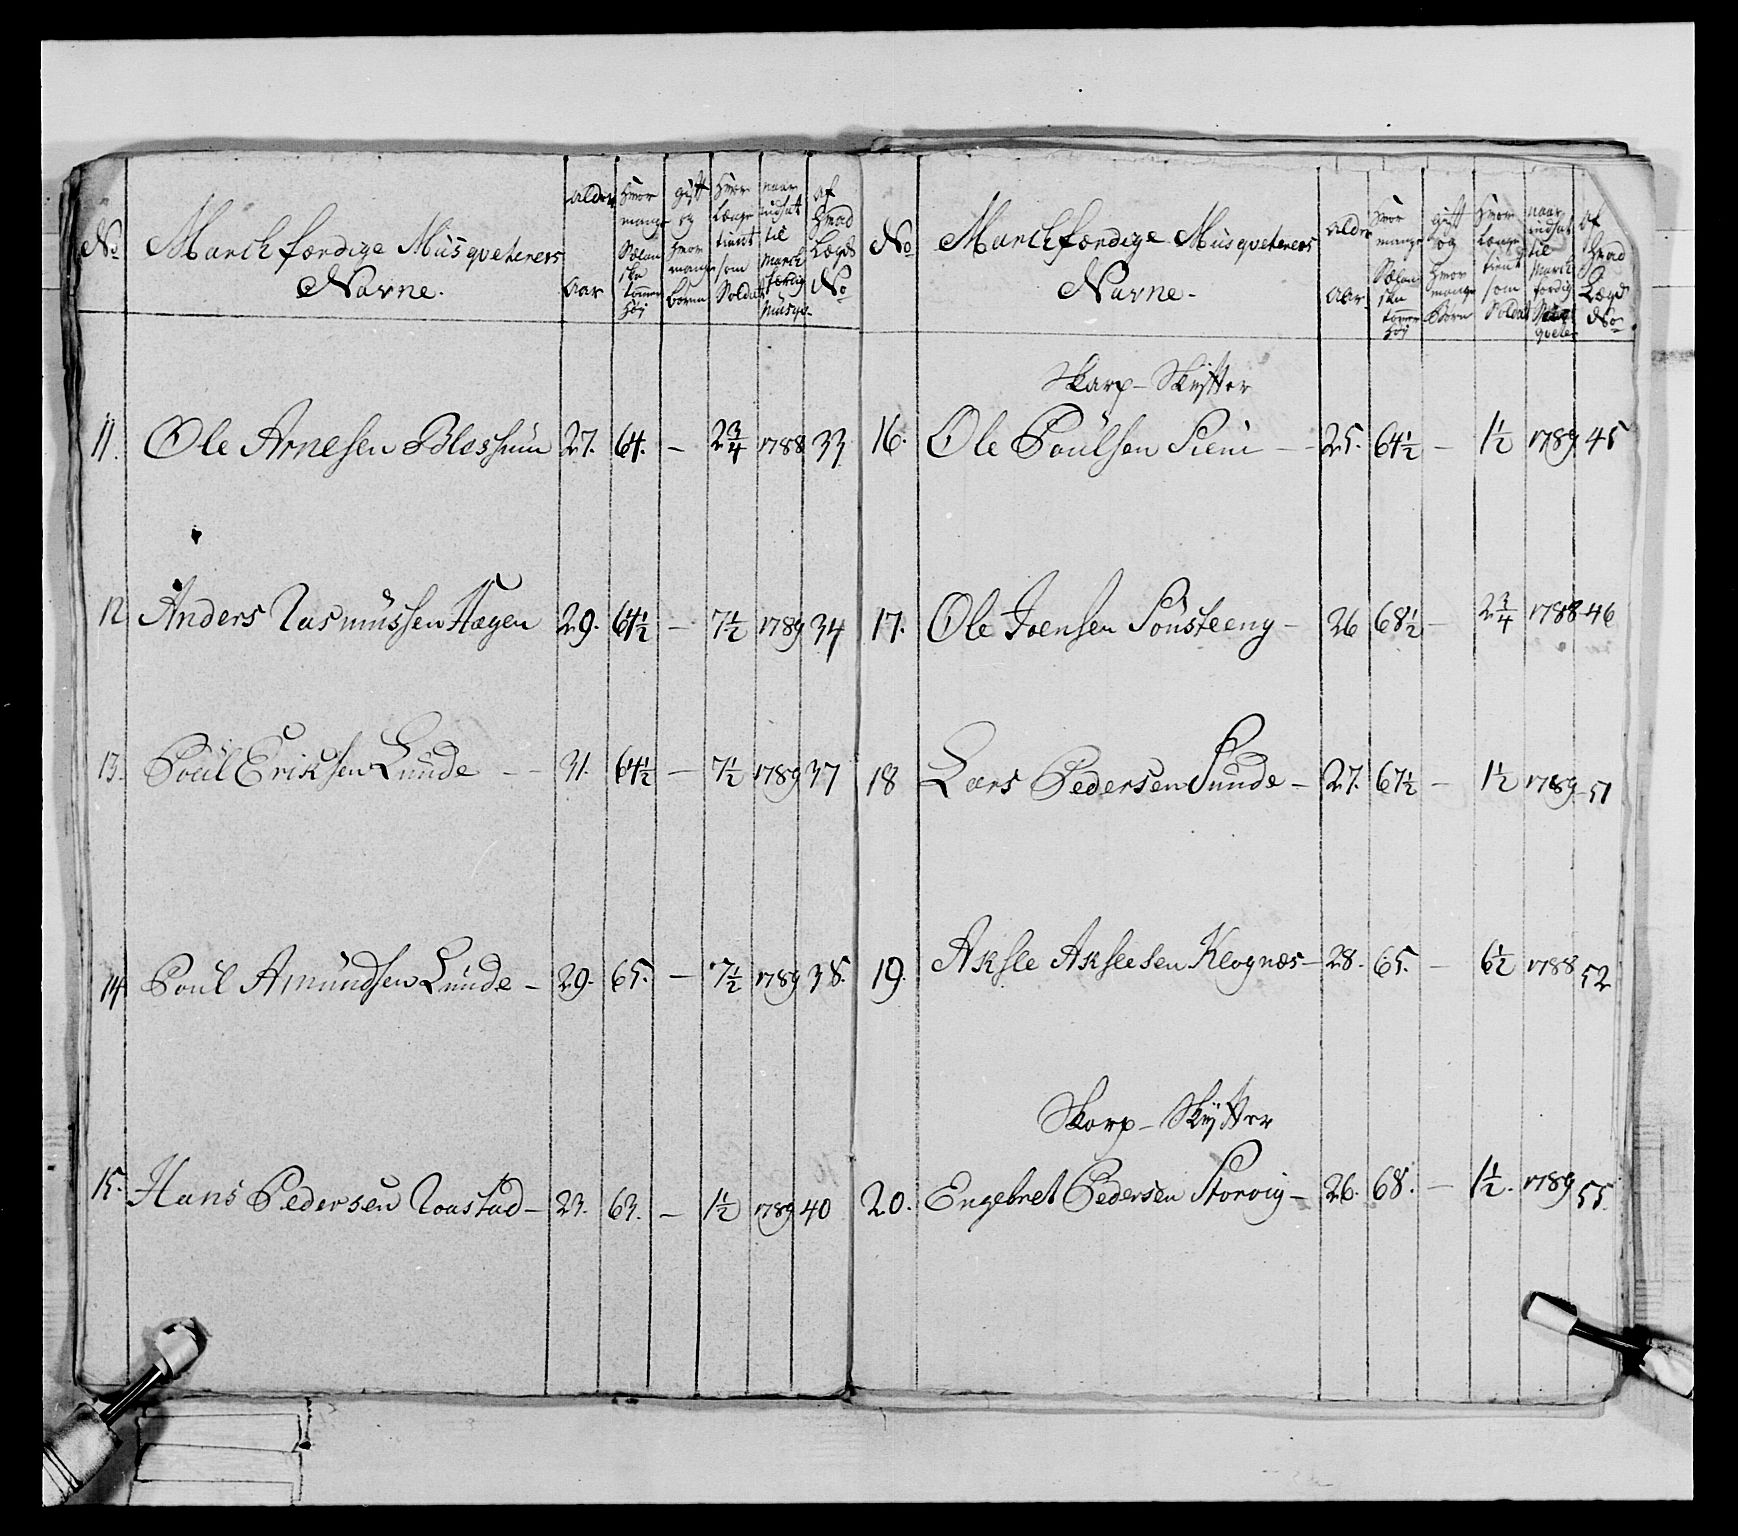 No
Marchfærdige Musqveterers
Navne.
alder
Aar
hvor
mange
Sælan
ske
tommer
høj
gift
og
hvor
mange
børn
hvor
længe
tient
som
Soldat
naar
indsat
til
March
færdig
Musqv.
af
hvad
Lægd
No
11. Ole Arnesen Blessum 27. 64. - 2 3/4 1788 33
12 Anders Rasmussen Hagen 29. 64 1/2 - 7 1/2 1789 34
13. Poul Eriksen Lunde - - 31. 64 1/2 - 7 1/2 1789 37
14 Poul Amundsen Lunde - 29. 65. - 7 1/2 1789 38.
15. Hans Pedersen Roastad - 23. 63. - 1 1/2 1789 40
No
Marchfærdige Musqveterers
Navne.
alder
Aar
hvor
mange
Sælan
ske
tommer
høj
gift
og
hvor
mange
Børn
hvor
længe
tient
som
Soldat
naar
indsat
til
March
færdig
Mus
qveter
af
hvad
Lægd
No
Skarp-Skytter
16. Ole Poulsen - 25. 64 1/2 - 1 1/2 1789 45
17. Ole Joensen Sönsteeng - 26 68 1/2 - 2 3/4 1788 46
18 Lars Pedersen Sunde - 27. 67 1/2 - 1 1/2 1789 51
19. Aksle Akslesen Klognæs - 28. 65. - 6 1/2 1788 52
Skarp-Skytter
20. Engebret Pedersen Storvig - 26. 68. - 1 1/2. 1789 55.